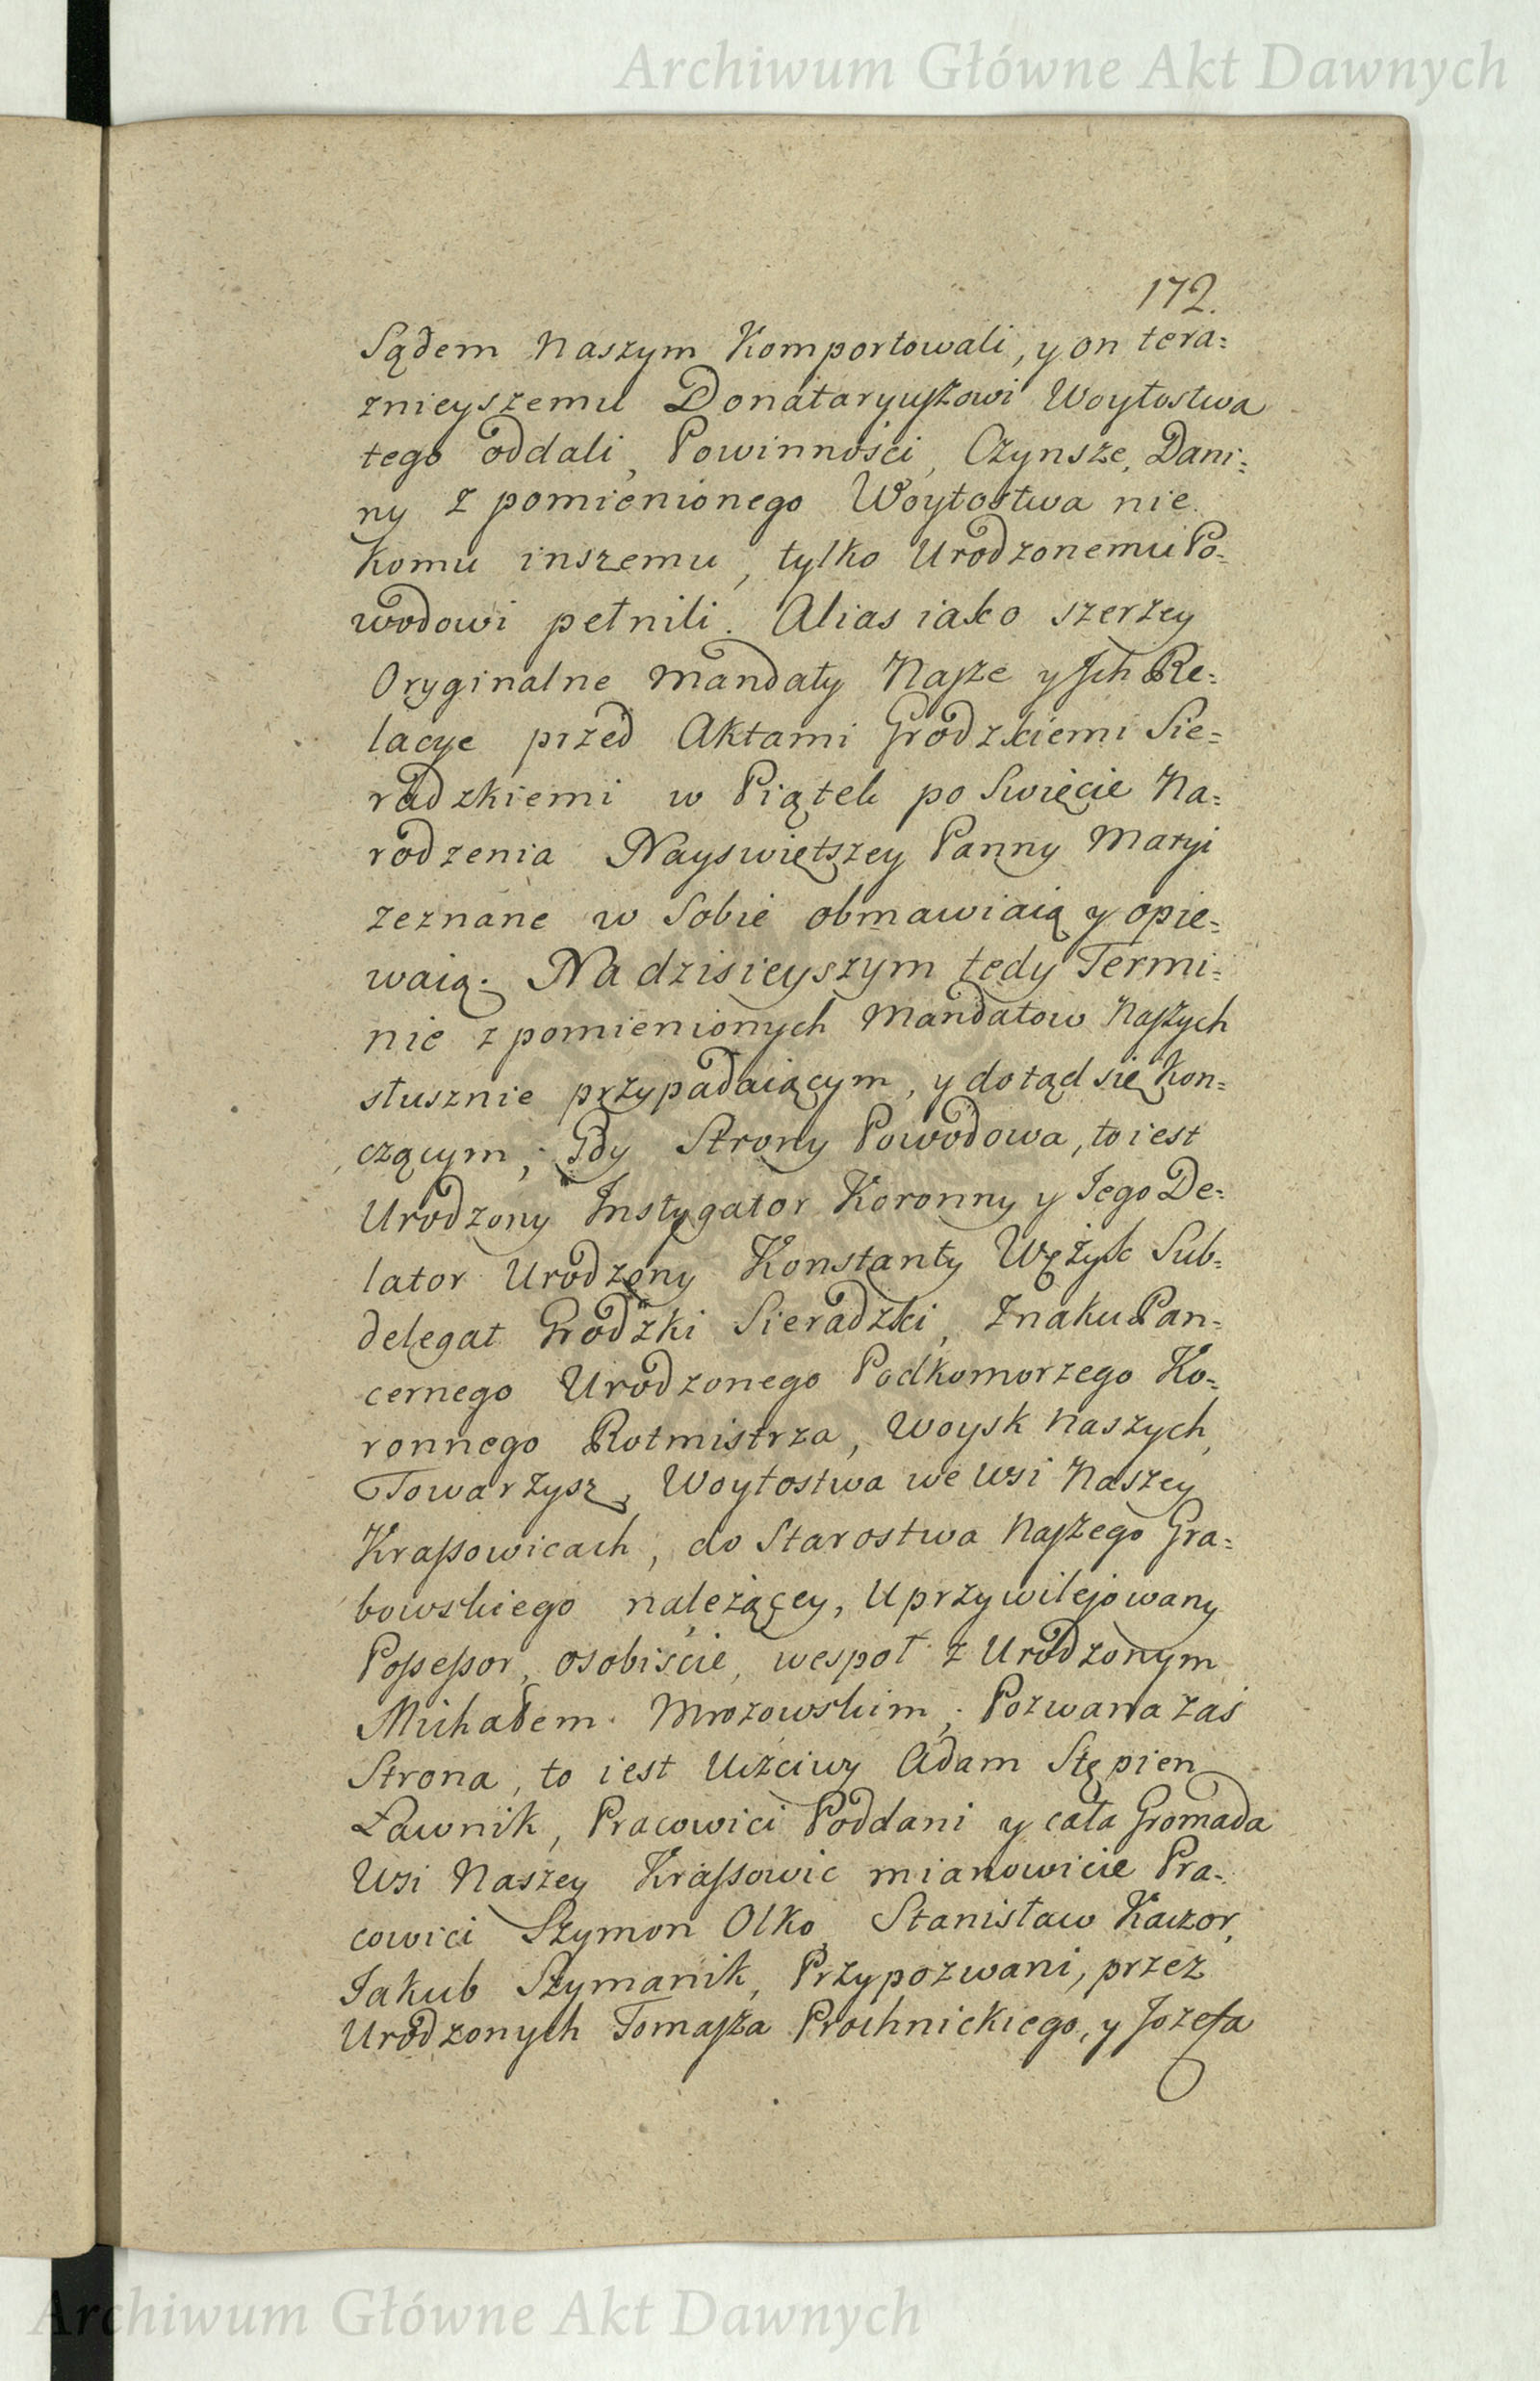 Archiwum Główne Akt Dawnych
172.
Sądem Naszym Komportowali, y on tera=
znieyszemu Donataryuszowi Woytostwa
tego oddali, Powinności, Czynsze, Dani=
ny z pomienionego Woytostwa nie
komu inszemu, tylko Urodzonemu Po=
wodowi pełnili. Alias iako szerzey
Oryginalne Mandaty Nasze y Jch Re=
lacye przed Aktami Grodzkiemi Sie=
radzkiemi w Piątek po Swięcie Na=
rodzenia Nayswiętszey Panny Maryi
zeznane w Sobie obmawiaią y opie=
waią. Na dzisieyszym tedy Termi=
nie z pomienionych Mandatow Naszych
słusznie przypadaiącym, y dotąd się kon=
czącym; Gdy Strony Powodowa, to iest
Urodzony Instygator Koronny y Jego De=
lator Urodzony Konstanty Wężyk Sub=
delegat Grodzki Sieradzki, Znaku Pan=
cernego Urodzonego Podkomorzego Ko=
ronnego Rotmistrza, Woysk Naszych,
Towarzysz, Woytostwa we Wsi Naszey
Krassowicach, do Starostwa Naszego Gra=
bowskiego należącey, Uprzywilejowany
Possessor, osobiście, wespoł z Urodzonym
Michałem Mrozowskim; Pozwana zaś
Strona, to iest Uczciwy Adam Stępien
Ławnik, Pracowici Poddani y cała Gromada
Wsi Naszey Krassowic mianowicie Pra=
cowici Szymon Olko, Stanisław Kaczor,
Jakub Szymanik, Przypozwani, przez
Urodzonych Tomasza Prochnickiego, y Jozefa
Archiwum Główne Akt Dawnych